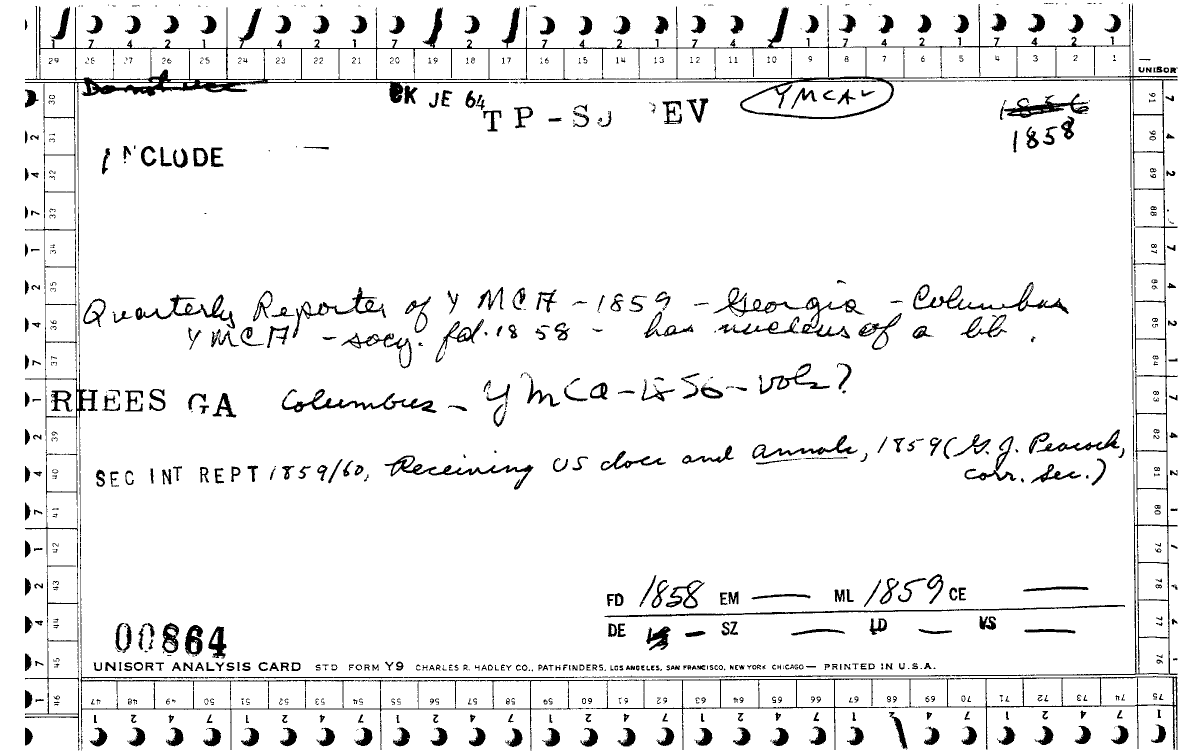 1 7 4 2 1 7 4 2 1 7 4 2 1 7 4 2 1 7 4 2 1 7 4 2 1 7 4 2 1
29 28 27 26 25 24 23 22 21 20 19 18 17 16 15 14 13 12 11 10 9 8 7 6 5 4 3 2 1
UNISOR
CK JE 64 YMCAL
TP-SU REV 1856
1858
INCLUDE
Quarterly Reporter of YMCA - 1859 - Georgia - Columbus
YMCA - socy. fd. 1858 - has nucleus of a lib.
RHEES GA Columbus - YMCA - 1856 - vols?
SEC INT REPT 1859/60, Receiving US docs and annals, 1859 (G. J. Peacock,
corr. sec.)
FD 1858 EM — ML 1859 CE —
DE SZ — LD — VS —
00864
UNISORT ANALYSIS CARD STD FORM Y9 CHARLES R. HADLEY CO., PATHFINDERS, LOS ANGELES, SAN FRANCISCO, NEW YORK CHICAGO — PRINTED IN U.S.A.
47 48 49 50 51 52 53 54 55 56 57 58 59 60 61 62 63 64 65 66 67 68 69 70 71 72 73 74 75
1 2 4 7 1 2 4 7 1 2 4 7 1 2 4 7 1 2 4 7 1 2 4 7 1 2 4 7 1